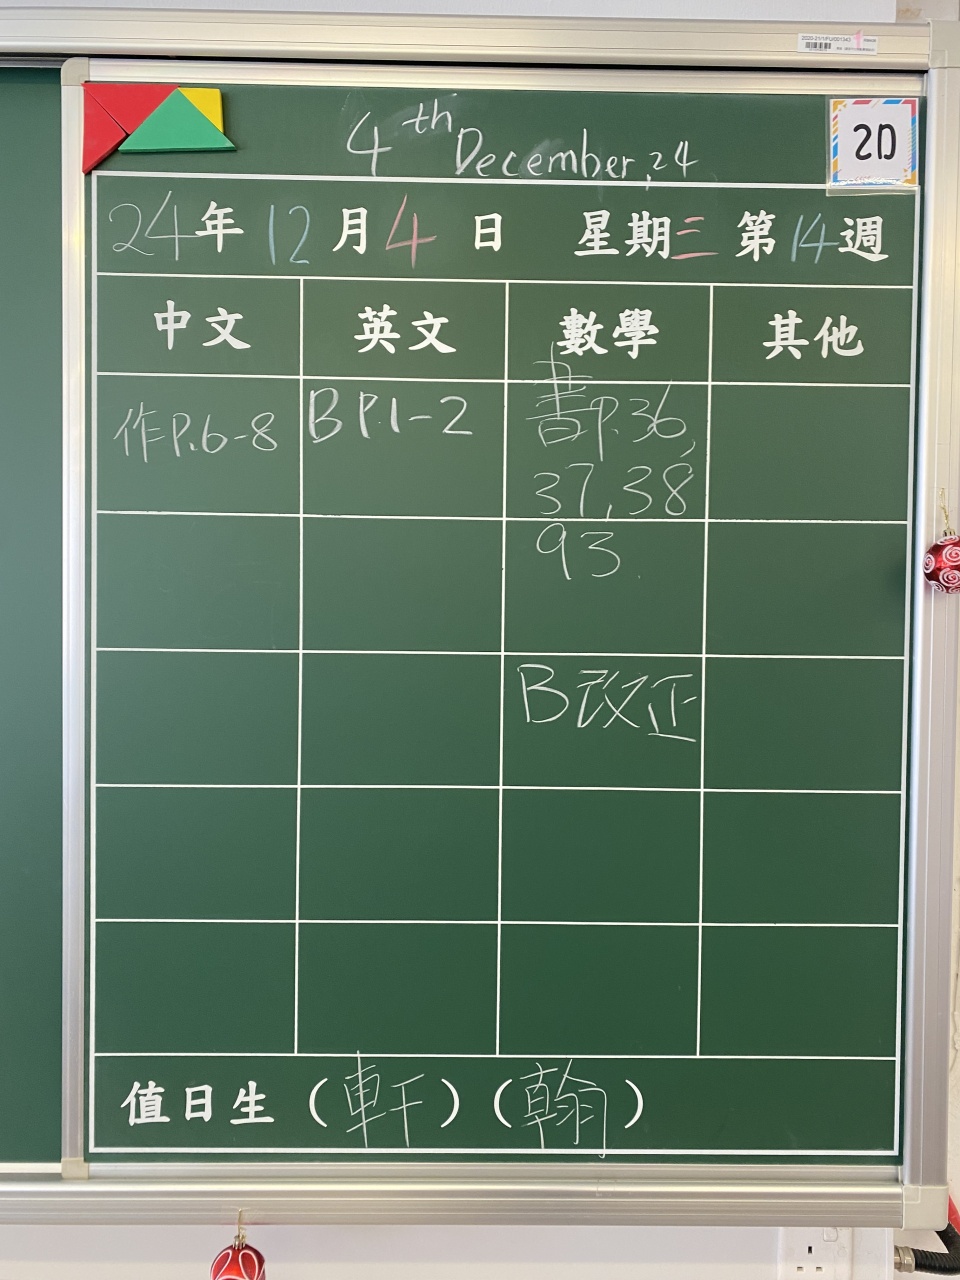 2020-21/1/FU/001343
4th December, 24
2D
24年12月4日 星期三 第14週
中文 英文 數學 其他
作P.6-8 B P.1-2 書P.36,
37,38
93
B 改正
值日生（軒）（翰）